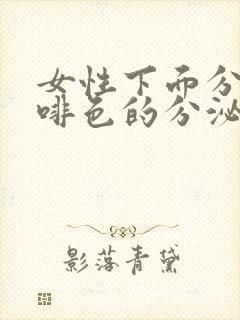 女性下面分
啡色的分泌
影落青黛